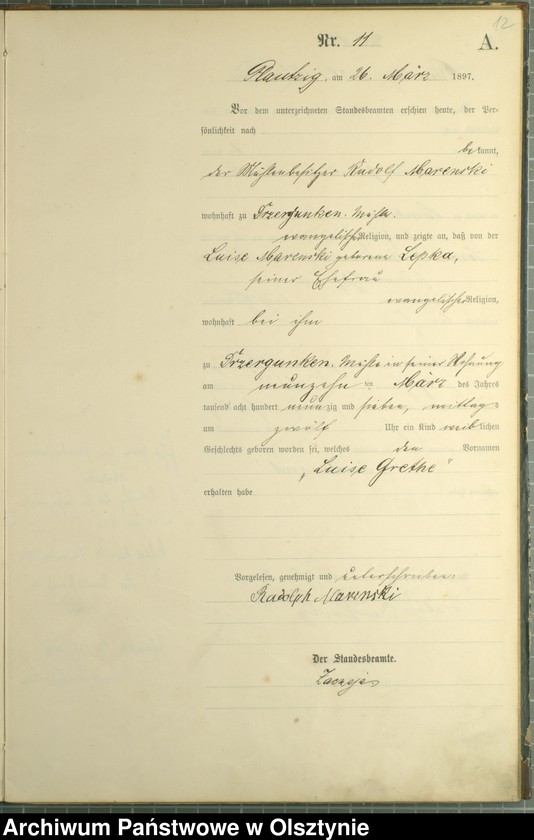 12
Nr. 11 A.
Plautzig, am 26. März 1897.
Vor dem unterzeichneten Standesbeamten erschien heute, der Per-
sönlichkeit nach
bekannt,
der Mühlenbesitzer Rudolf Marenski
wohnhaft zu Przergunken. Mühle.
evangelischer Religion, und zeigte an, daß von der
Luise Marenski geborene Lepka,
seiner Ehefrau
evangelischer Religion,
wohnhaft bei ihm
zu Przergunken. Mühle in seiner Wohnung
am neunzehn ten März des Jahres
tausend acht hundert neunzig und sieben, mittags
um zwölf Uhr ein Kind weiblichen
Geschlechts geboren worden sei, welches den Vornamen
„Luise Grethe"
erhalten habe
Vorgelesen, genehmigt und unterschrieben.
Rudolph Marenski
Der Standesbeamte.
Archiwum Państwowe w Olsztynie